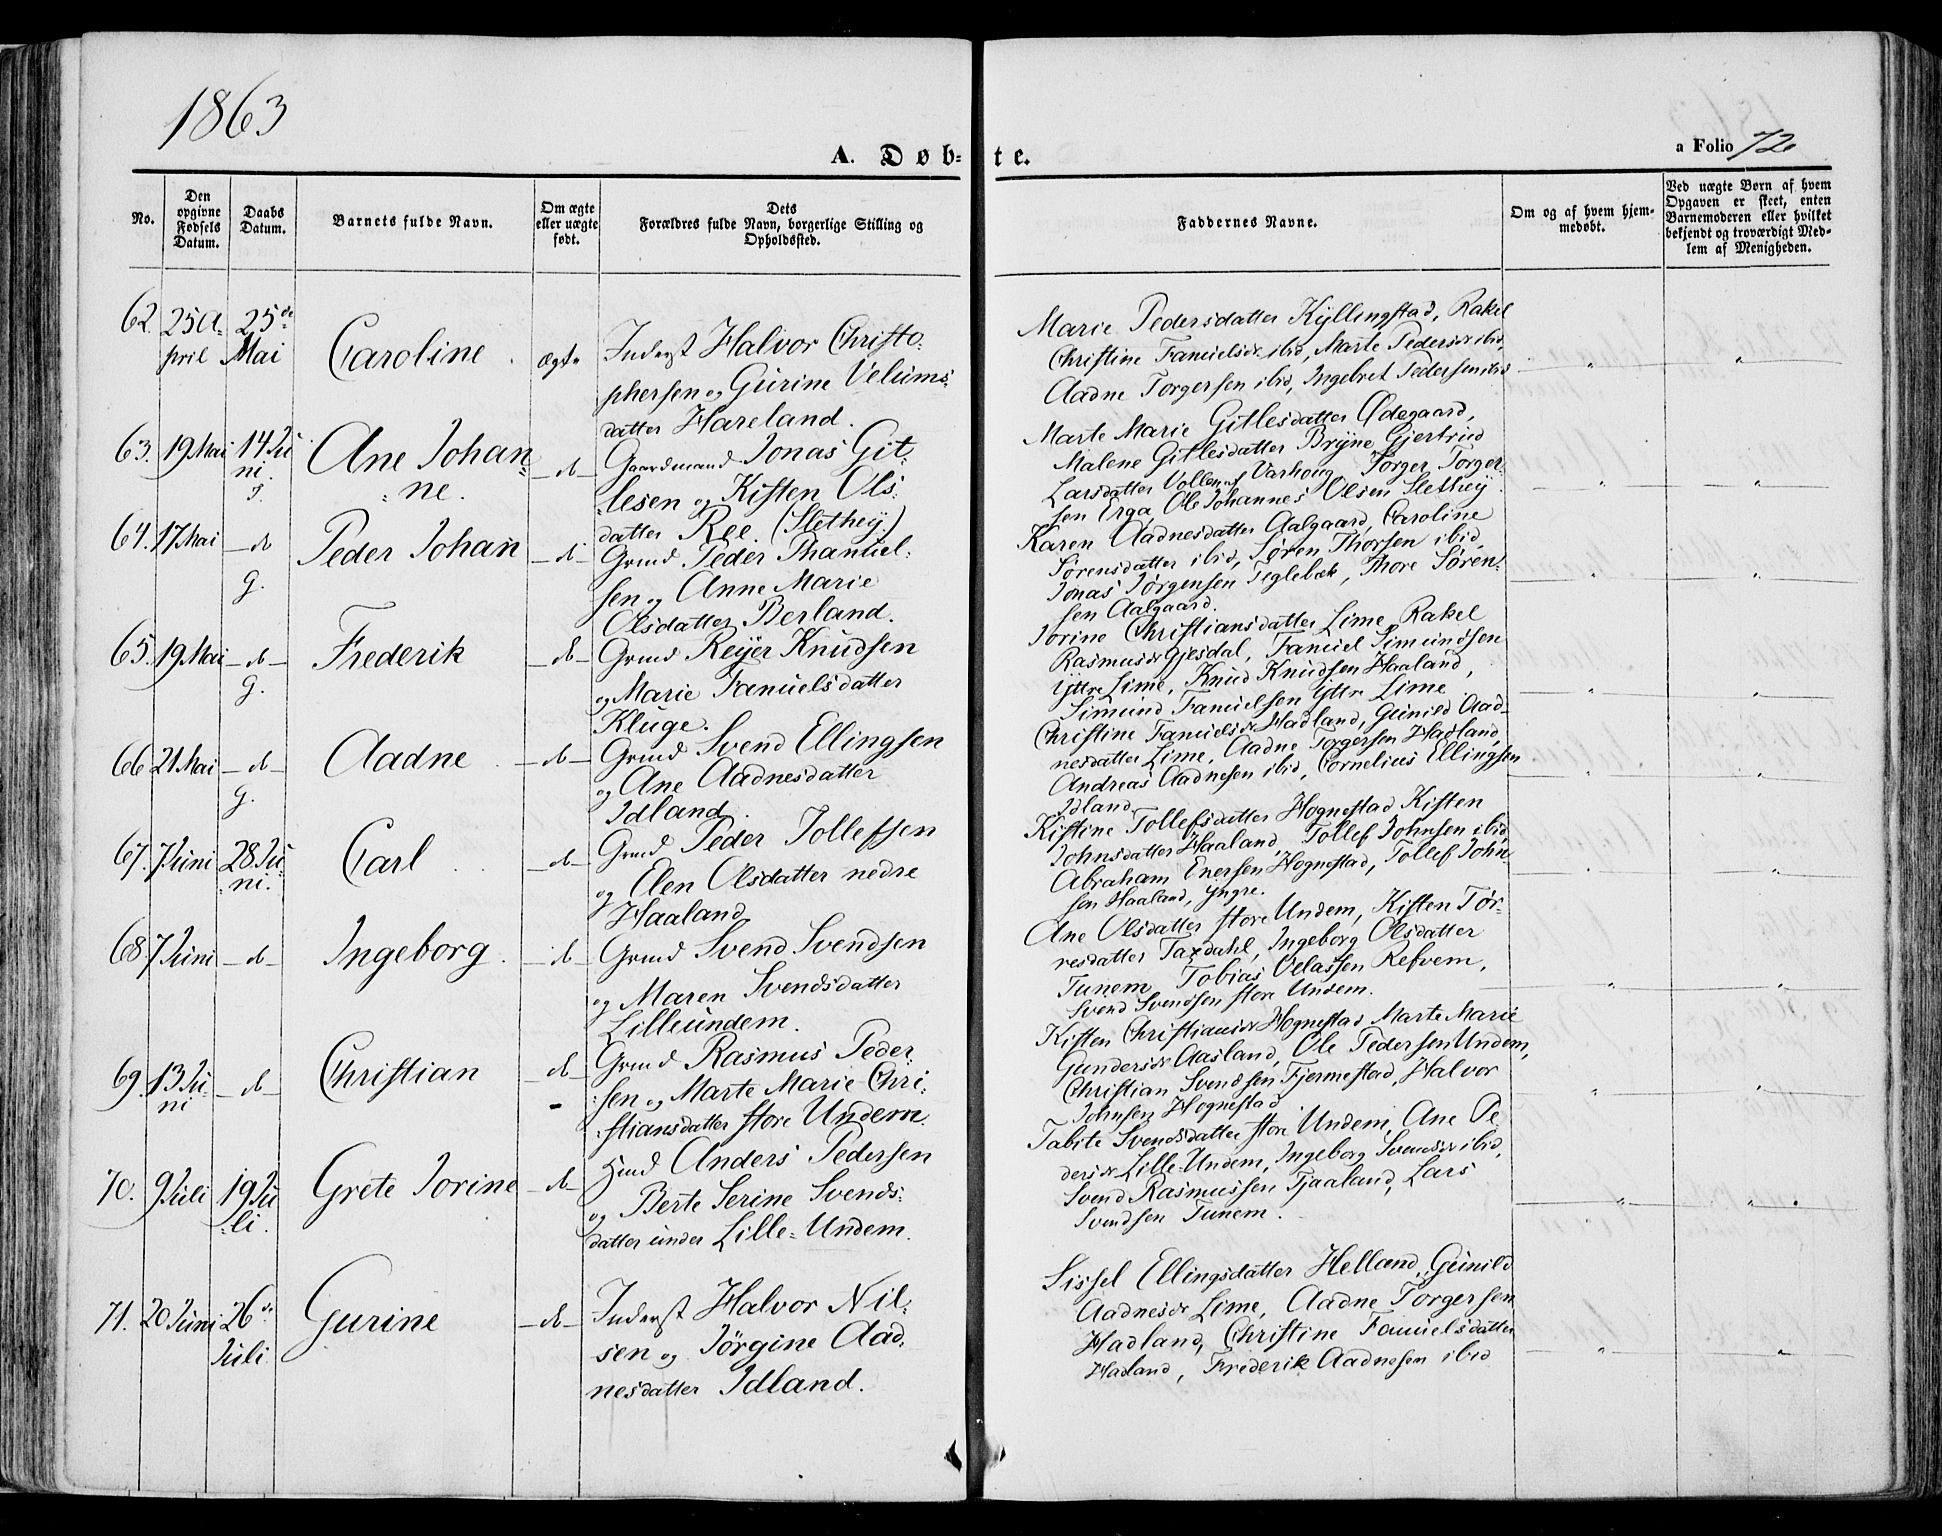 1863
A. Døb-
te.
a Folio 72
No.
Den opgivne Fødsels Datum.
Daabs Datum.
Barnets fulde Navn.
Om ægte eller uægte født.
Dets Forældres fulde Navn, borgerlige Stilling og Opholdssted.
Faddernes Navne.
Om og af hvem hjemmedøbt.
Ved uægte Børn af hvem Opgaven er skeet, enten Barnemoderen eller hvilket bekjendt og troværdigt Medlem af Menigheden.
62. 25 A- 25de
pril Mai
Caroline
ægte
Inderst Halvor Christo-
phersen og Gurine Velums-
datter Hareland.
Marie Pedersdatter Kyllingstad, Rakel
Christine Tanielsdr ibid, Marte Pedersdr ibid,
Aadne Torgersen ibid, Ingebret Pedersen ibid
63. 19 Mai 14 Ju-
ni.
Ane Johan-
ne.
do
Gaardmand Jonas Git-
lesen og Kisten Ols-
datter Ree. (Slethey.)
Marte Marie Gitlesdatter Ødegaard,
Malene Gitlesdatter Bryne, Gjertrud
Larsdatter Vollen af Varhoug, Torger Torger-
sen Erga, Ole Johannes Olsen Slethey.
64. 17 Mai do
G.
Peder Johan
do
Grmd Peder Thaniel-
sen og Anne Marie
Olsdatter Berland.
Karen Aadnesdatter Aalgaard, Caroline
Sørensdatter ibid, Søren Thorsen ibid,
Jonas Jørgensen Teglebæk, Thore Søren-
sen Aalgaard.
65. 19 Mai do
G.
Frederik
do
Grmd Reijer Knudsen
og Marie Tanielsdatter
Kluge.
Jorine Christiansdatter Lime, Rakel
Rasmusdr Gjesdal, Taniel Simundsen
Ytre Lime, Knud Knudsen Haaland,
Simund Tanielsen Ytre Lime.
66 21 Mai do
G.
Aadne
do
Grmd Svend Ellingsen
og Ane Aadnesdatter
Idland.
Christine Tanielsdr Hadland, Gunild Aad-
nesdatter Lime, Aadne Torgersen Hadland,
Andreas Aadnesen ibid, Cornelius Ellingsen
Idland
67. 7 Juni 28 Ju-
ni.
Carl
do
Grmd Peder Tollefsen
og Elen Olsdatter nedre
Haaland.
Kistine Tollefsdatter Hognestad, Kisten
Johnsdatter Haaland, Tollef Johnsen ibid,
Abraham Enersen Hognestad, Tollef John-
sen Haaland, yngre.
68 7 Juni do
Ingeborg
do
Grmd Svend Svendsen
og Maren Svendsdatter
Lilleundem.
Ane Olsdatter store Undem, Kisten Tør-
resdatter Taxdahl, Ingeborg Olsdatter
Tunem, Tobias Velassen Refvem,
Svend Svendsen store Undem.
69. 13 Ju-
ni do
Christian
do
Grmd Rasmus Peder-
sen og Marte Marie Chri-
stiansdatter store Undem.
Kisten Christiansdr Hognestad, Marte Marie
Gundersdr Aasland, Ole Pedersen Undem,
Christian Svendsen Fjermestad, Halvor
Johnsen Hognestad
70. 9 Juli 19 Ju-
li.
Grete Jorine
do
Hmd Anders Pedersen
og Berte Serine Svends-
datter under Lille-Undem.
Tabite Svendsdatter store Undem, Ane Pe-
dersdr Lille-Undem, Ingeborg Svendsdr ibid,
Svend Rasmussen Tjaaland, Lars
Svendsen Tunem.
71. 20 Juni 26de
Juli
Gurine
do
Inderst Halvor Nil-
sen og Jørgine Aad-
nesdatter Idland.
Sissel Ellingsdatter Helland, Gunild
Aadnesdr Lime, Aadne Torgersen
Hadland, Christine Tanielsdatter
Hadland, Frederik Aadnesen ibid